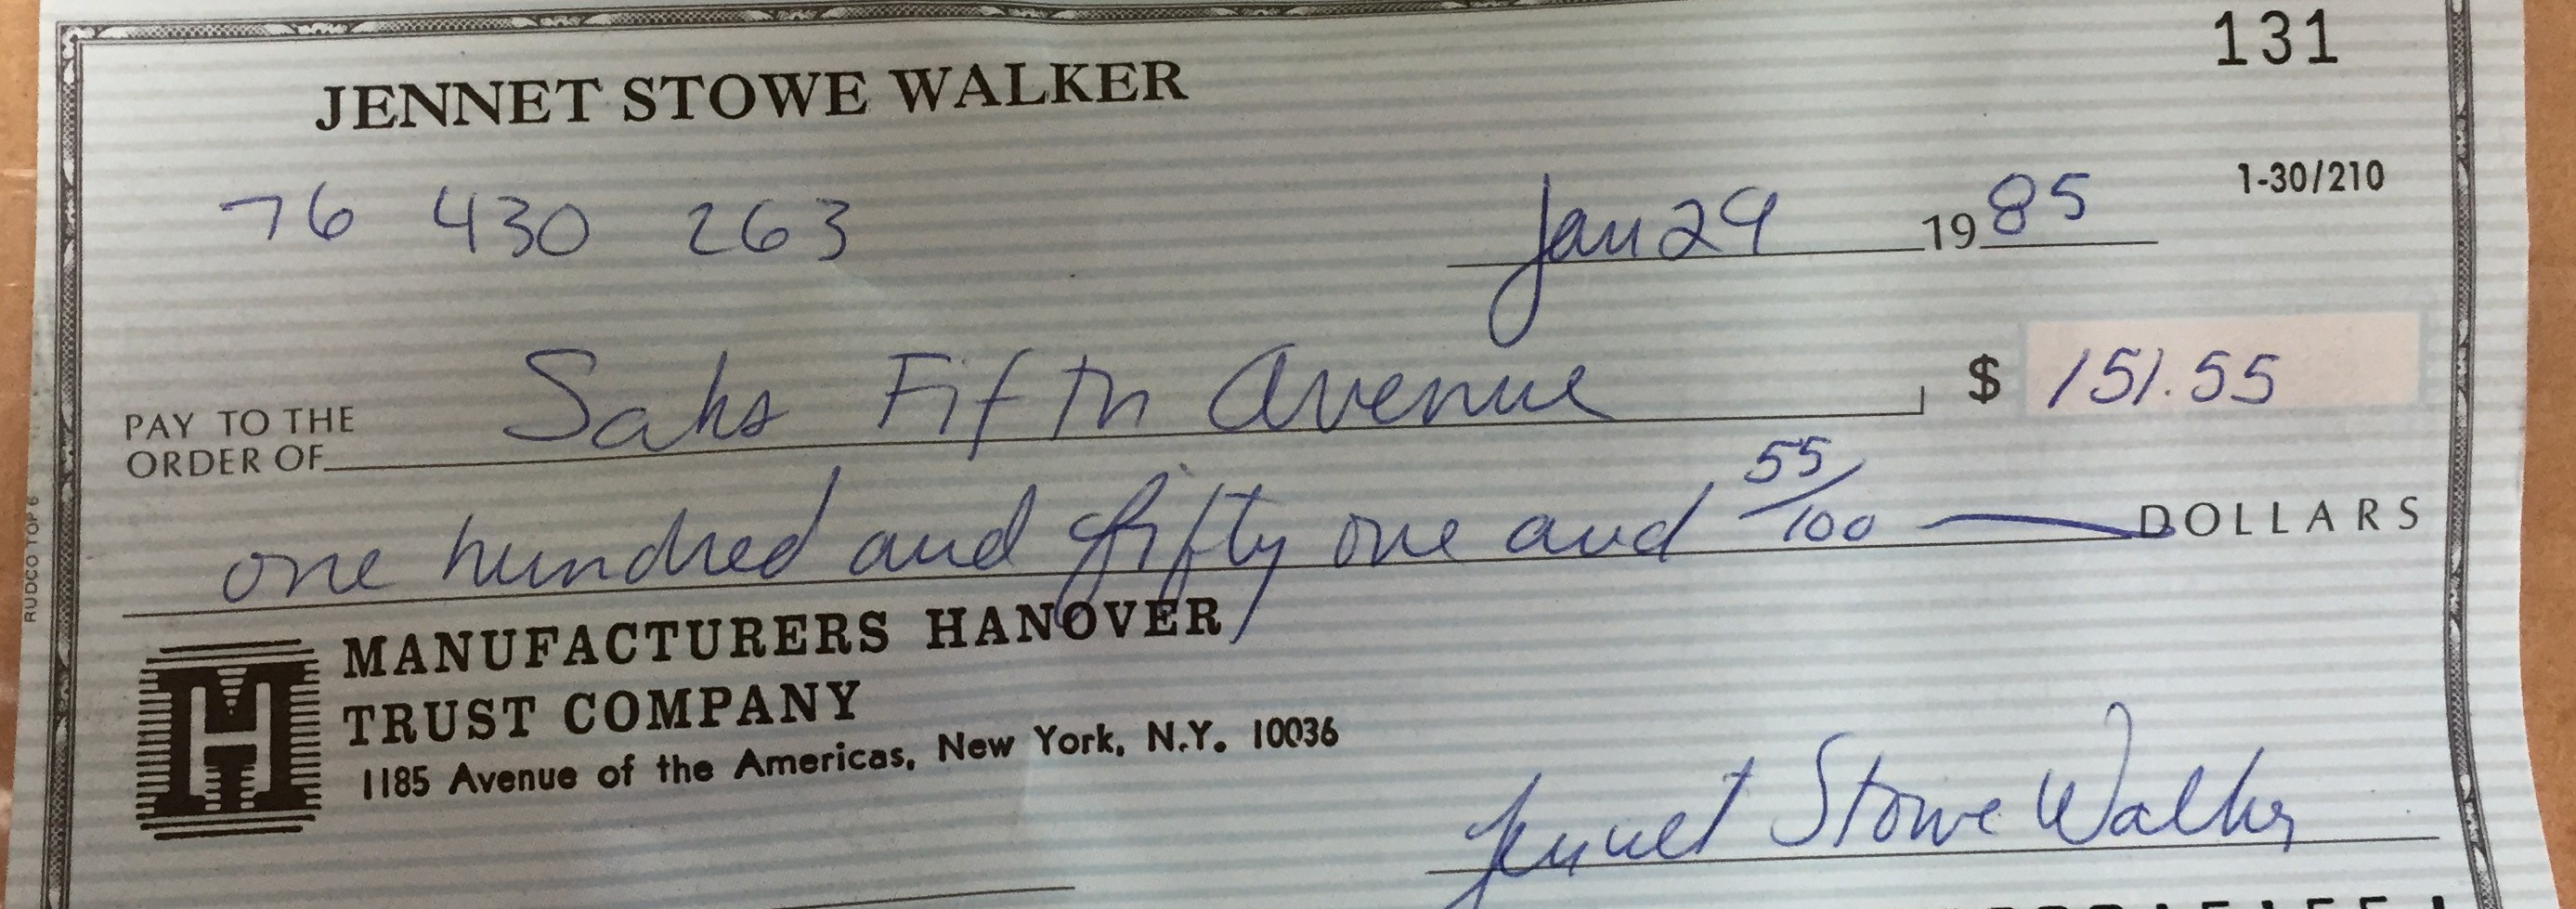 131
JENNET STOWE WALKER
1-30/210
76 430 263
Jan 29 1985
PAY TO THE ORDER OF Saks Fifth Avenue $ 151.55
one hundred and fifty one and 55/100 DOLLARS
RUDCO TOP 6
MANUFACTURERS HANOVER
TRUST COMPANY
1185 Avenue of the Americas, New York, N.Y. 10036
Jennet Stowe Walker